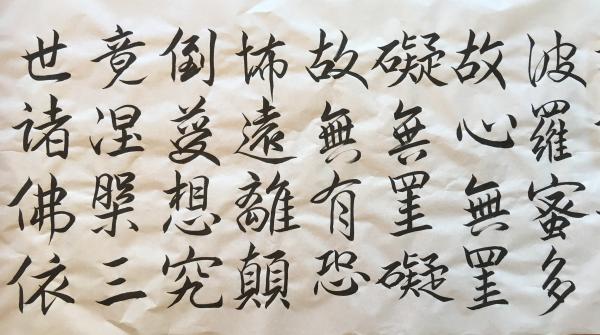 波羅蜜多
故心無罣
礙無罣礙
故無有恐
怖遠離顛
倒夢想究
竟涅槃三
世諸佛依